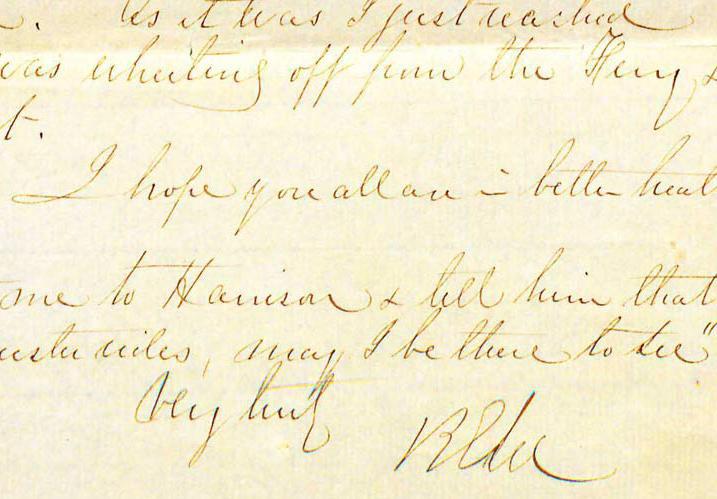 . As it was I just reached
was wheeling off from the Ferry &
t.
I hope you all are in better heal
me to Harrison & tell him that
may I be there to see"
Very truly
RELee